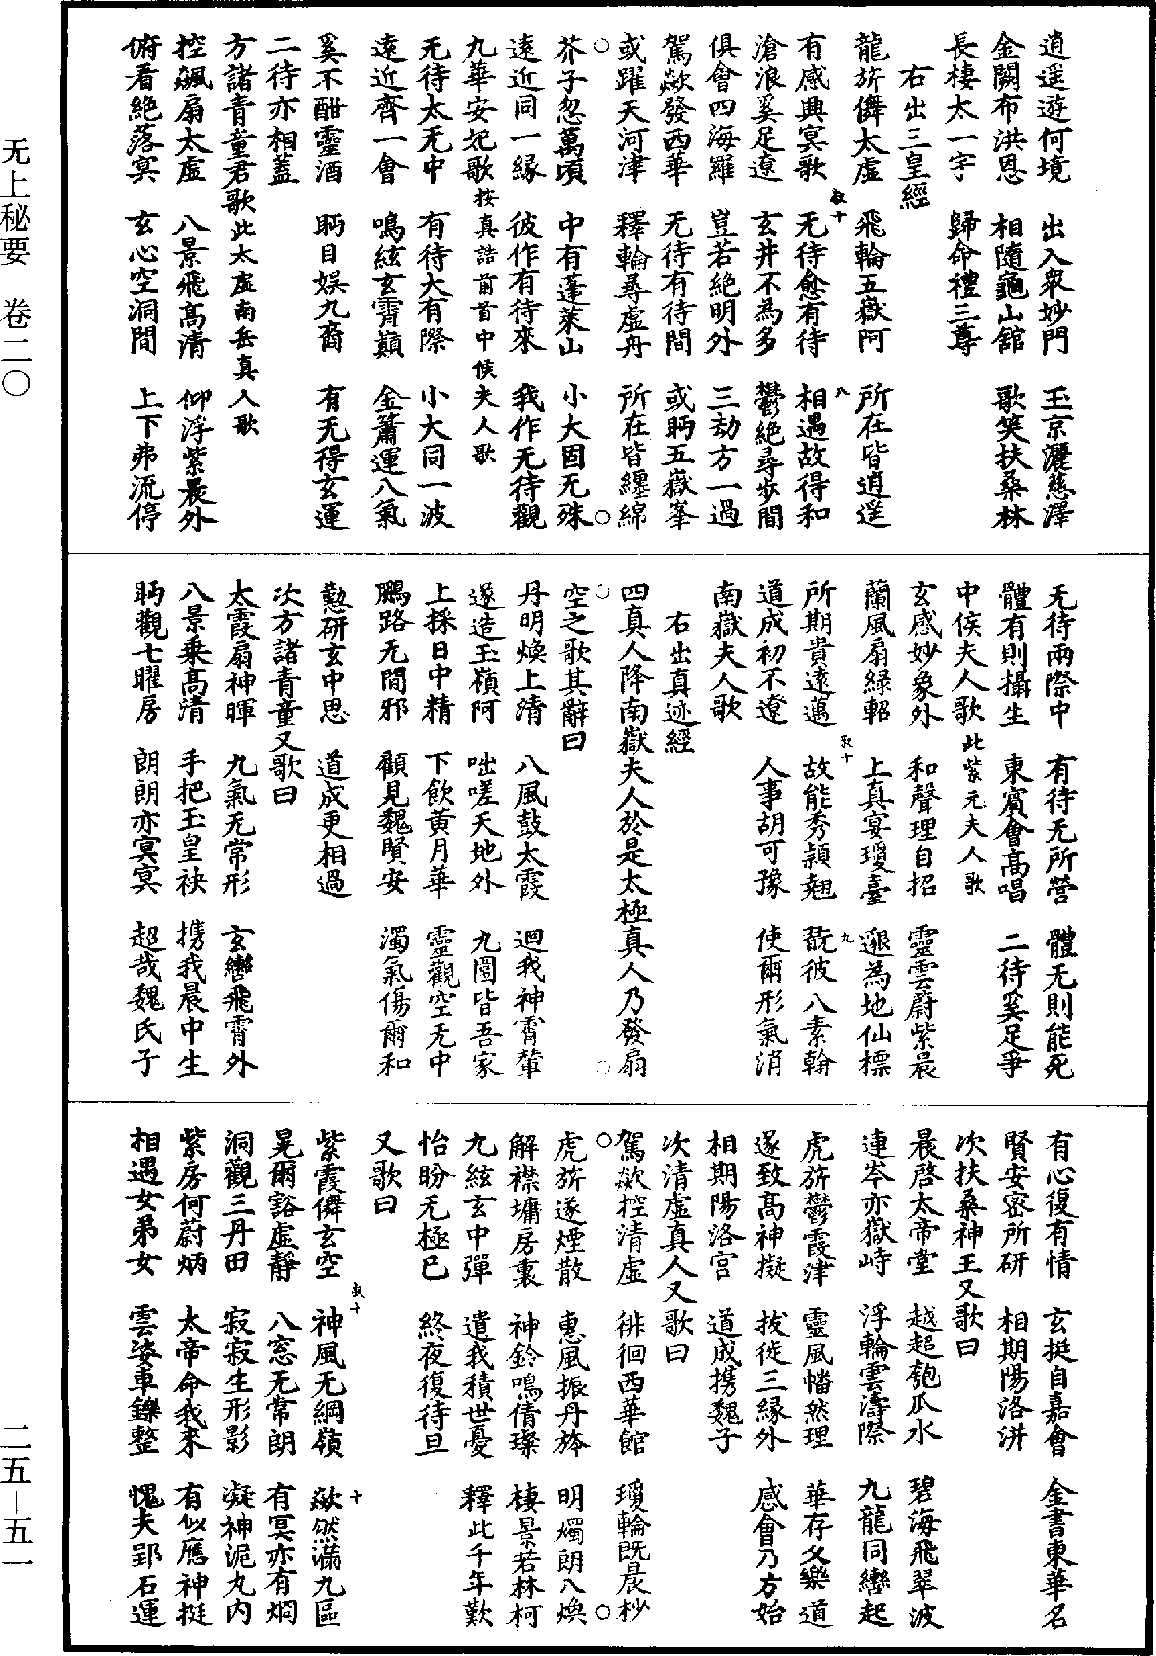 逍遥遊何境　出入衆妙門　玉京灑慈澤
金闕布洪恩　相隨龜山舘　歌笑扶桑林
長棲太一宇　歸命禮三尊
右出三皇經
龍旂儛太虛　飛輪五嶽阿　所在皆逍遥
有感興冥歌　无待愈有待　相遇故得和
滄浪奚足遼　玄井不為多　鬱絶尋步間
俱會四海羅　豈若絶明外　三劫方一過
駕欻發西華　无待有待間　或眄五嶽峯
或躍天河津　釋輪尋虛舟　所在皆纏綿
芥子忽萬頃　中有蓬萊山　小大固无殊
遠近同一緣　彼作有待來　我作无待觀
九華安妃歌按真誥前首中候夫人歌
无待太无中　有待大有際　小大同一波
遠近齊一會　鳴絃玄霄巔　金簫運八氣
奚不酣靈酒　眄目娱九裔　有无得玄運
二待亦相蓋
方諸青童君歌此太虛南岳真人歌
控飈扇太虛　八景飛高清　仰浮紫晨外
俯看絶落冥　玄心空洞間　上下弗流停
无待兩際中　有待无所營　體无則能死
體有則攝生　東賓會高唱　二待奚足爭
中候夫人歌此紫元夫人歌
玄感妙象外　和聲理自招　靈雲蔚紫晨
蘭風扇綠軺　上真宴瓊臺　邈為地仙標
所期貴遠邁　故能秀穎翹　翫彼八素翰
道成初不遼　人事胡可豫　使爾形氣消
南嶽夫人歌
右出真迹經
四真人降南嶽夫人於是太極真人乃發扇
空之歌其辭曰
丹明煥上清　八風鼓太霞　迴我神霄輦
遂造玉嶺阿　咄嗟天地外　九圍皆吾家
上採日中精　下飲黄月華　靈觀空无中
鵬路无間邪　顧見魏賢安　濁氣傷爾和
懃研玄中思　道成更相過
次方諸青童又歌曰
太霞扇神暉　九氣无常形　玄轡飛霄外
八景乗高清　手把玉皇袂　携我晨中生
眄觀七曜房　朗朗亦冥冥　超哉魏氏子
有心復有情　玄挺自嘉會　金書東華名
賢安密所研　相期陽洛汧
次扶桑神王又歌曰
晨啓太帝堂　越超匏瓜水　碧海飛翠波
連岑亦嶽峙　浮輪雲濤際　九龍同轡起
虎旂鬱霞津　靈風幡然理　華存久樂道
遂致高神擬　拔徙三緣外　感會乃方始
相期陽洛宫　道成携魏子
次清虛真人又歌曰
駕欻控清虛　徘徊西華館　瓊輪既晨杪
虎旂遂煙散　惠風振丹旍　明燭朗八煥
解襟墉房裏　神鈴鳴倩璨　棲景若林柯
九絃玄中彈　遺我積世憂　釋此千年歎
怡盼无極已　終夜復待旦
又歌曰
紫霞儛玄空　神風无綱領　欻然滿九區
晃爾豁虛靜　八窓无常朗　有冥亦有炯
洞觀三丹田　寂寂生形影　凝神泥丸内
紫房何蔚炳　太帝命我來　有似應神挺
相遇女弟女　雲姿車鑠整　愧夫郢石運
敎十
八
敎十
九
敎十
十
无上秘要　卷二〇
二五—五一